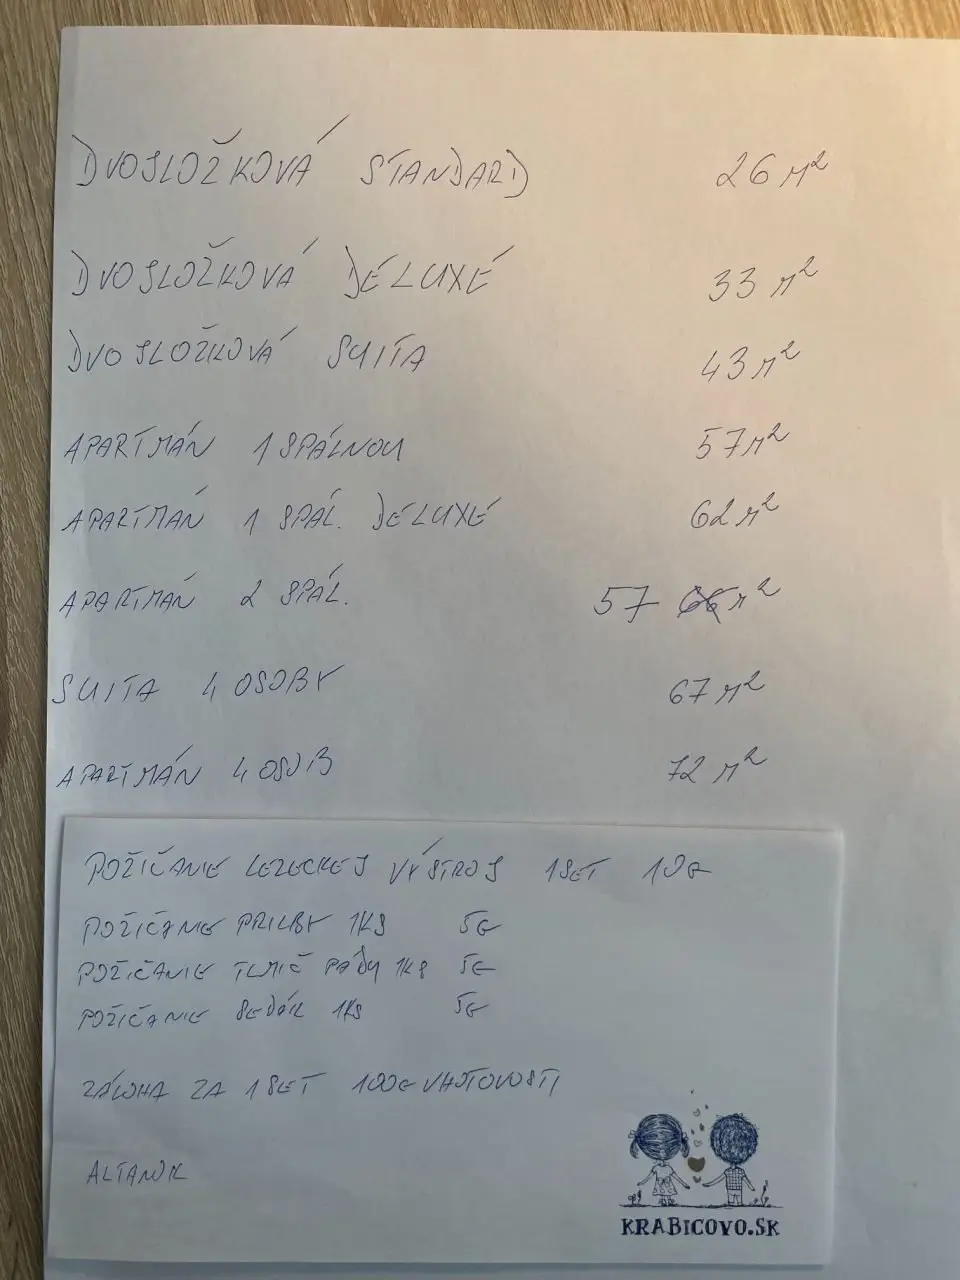 DVOJLOŽKOVÁ ŠTANDARD 26 M²
DVOJLOŽKOVÁ DELUXE 33 M²
DVOJLOŽKOVÁ SUITA 43 M²
APARTMÁN 1 SPÁLŇOU 57 M²
APARTMÁN 1 SPÁL. DELUXE 62 M²
APARTMÁN 2 SPÁL. 57 66 M²
SUITA 4 OSOBY 67 M²
APARTMÁN 4 OSOB 72 M²
POŽIČANIE LEZECKEJ VÝSTROJ 1SET 10€
POŽIČANIE PRILBY 1KS 5€
POŽIČANIE TLMIČ PÁDU 1KS 5€
POŽIČANIE SEDÁK 1KS 5€
ZÁLOHA ZA 1 SET 100€ V HOTOVOSTI
KRABICOVO.SK